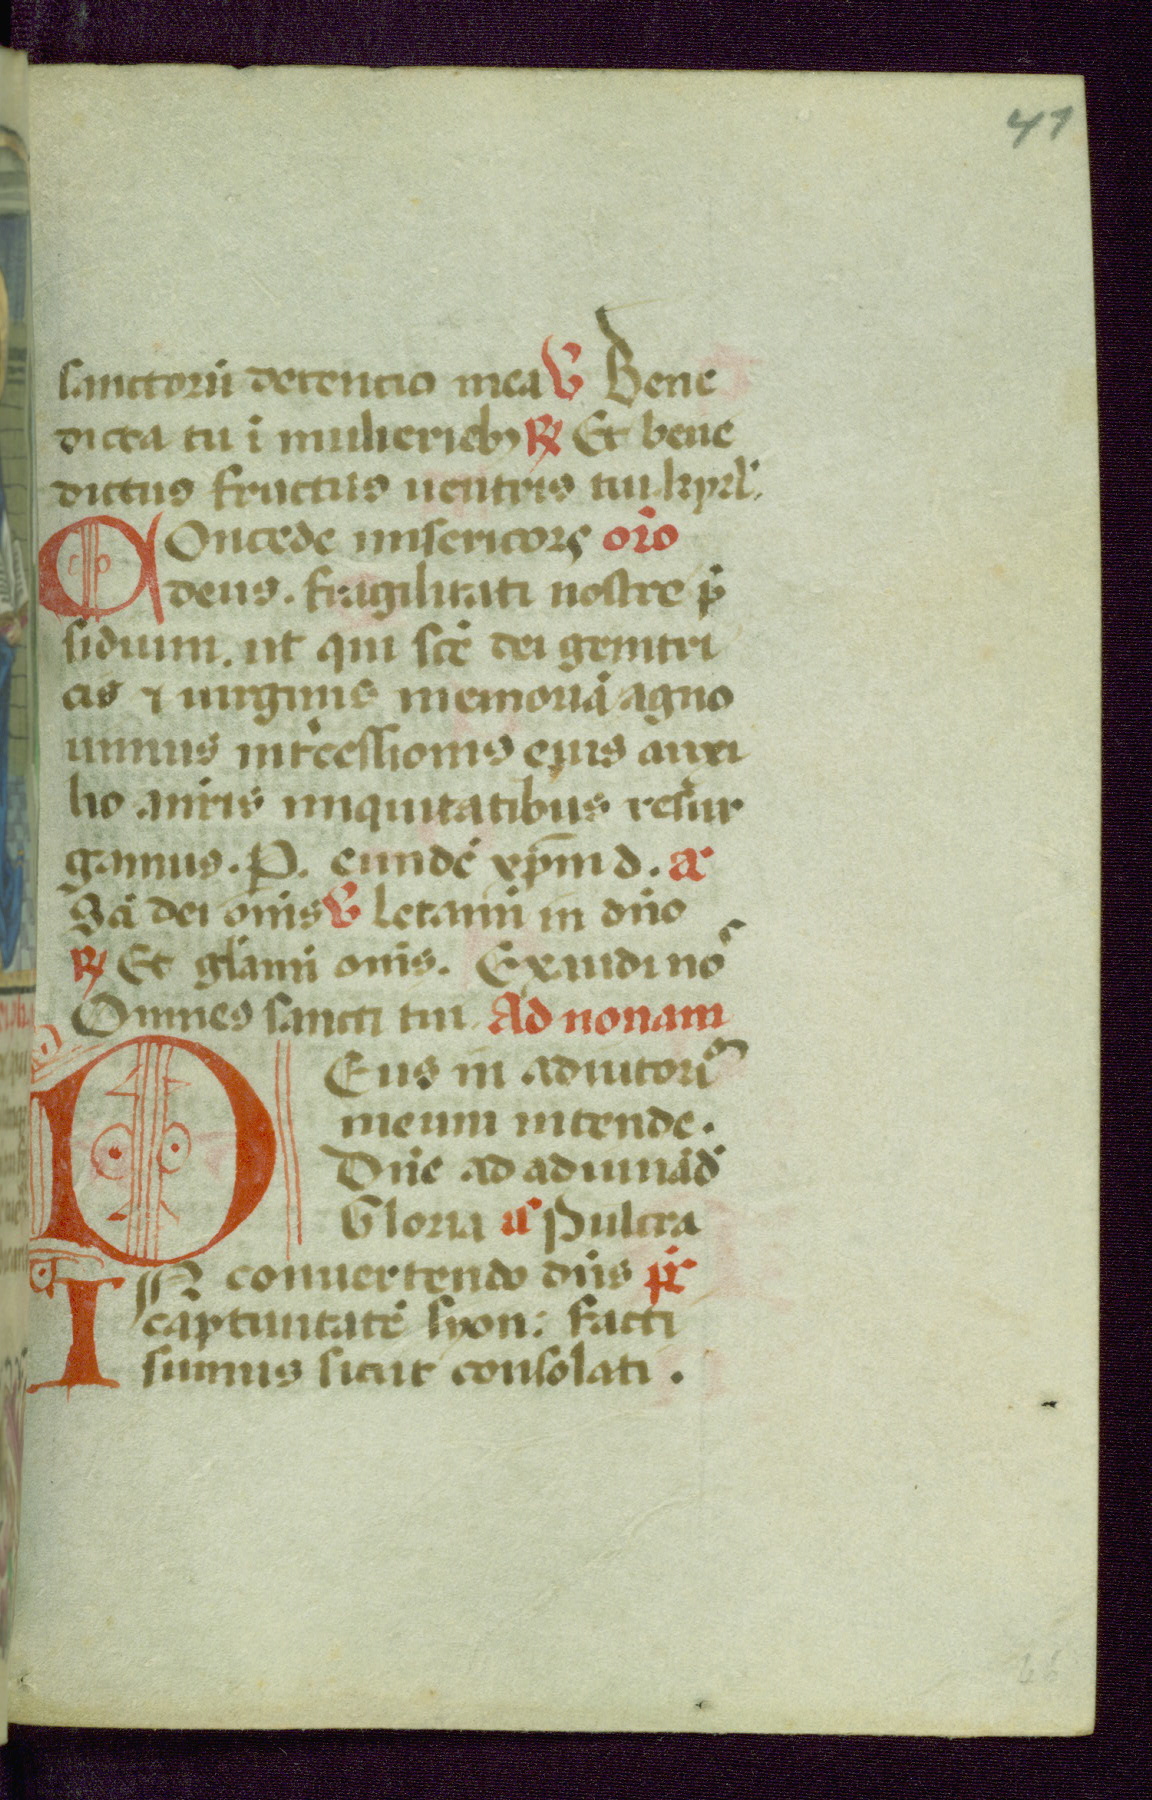 41
sanctorũ detentio mea ℣ Bene
dicta tu ĩ mulierieb9 ℟ Et bene
dictus fructus uentris tui. kyrl'.
COncede misericors or̃o
deus. fragilitati nostre p̃
sidium. ut qui sc̃e dei genitri
cis ⁊ uirginis memoriã agno
uimus int̾cessionis eius auxi
lio a nr̃is iniquitatibus resur
gamus. P. eundẽ xp̃m d. a
Sc̃i dei om̃s ℣ letamĩ in dño
℟ Et gl̃amĩ om̃s. Exaudi nos
Omnes sancti tui Ad nonam
DEus in adiutoriũ
meum intende.
Dñe ad adiuuãd
Gloria a Pulcra
IN conuertendo dñs p̃s
captiuitatẽ syon: facti
sumus sicut consolati.